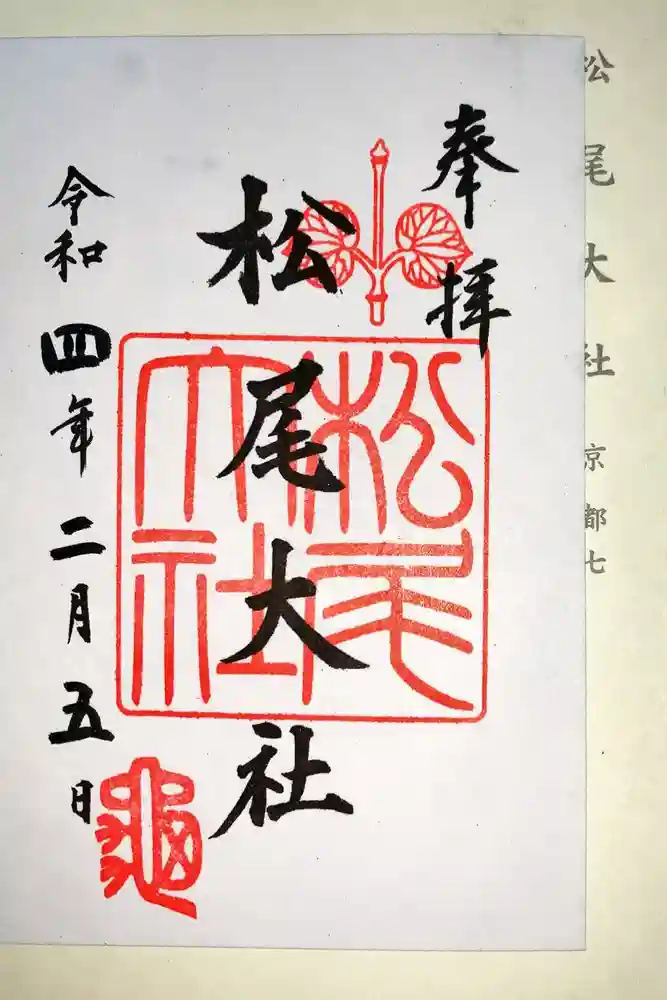 松尾大社 京都七
奉拝
松尾大社
松尾大社
令和四年二月五日
亀